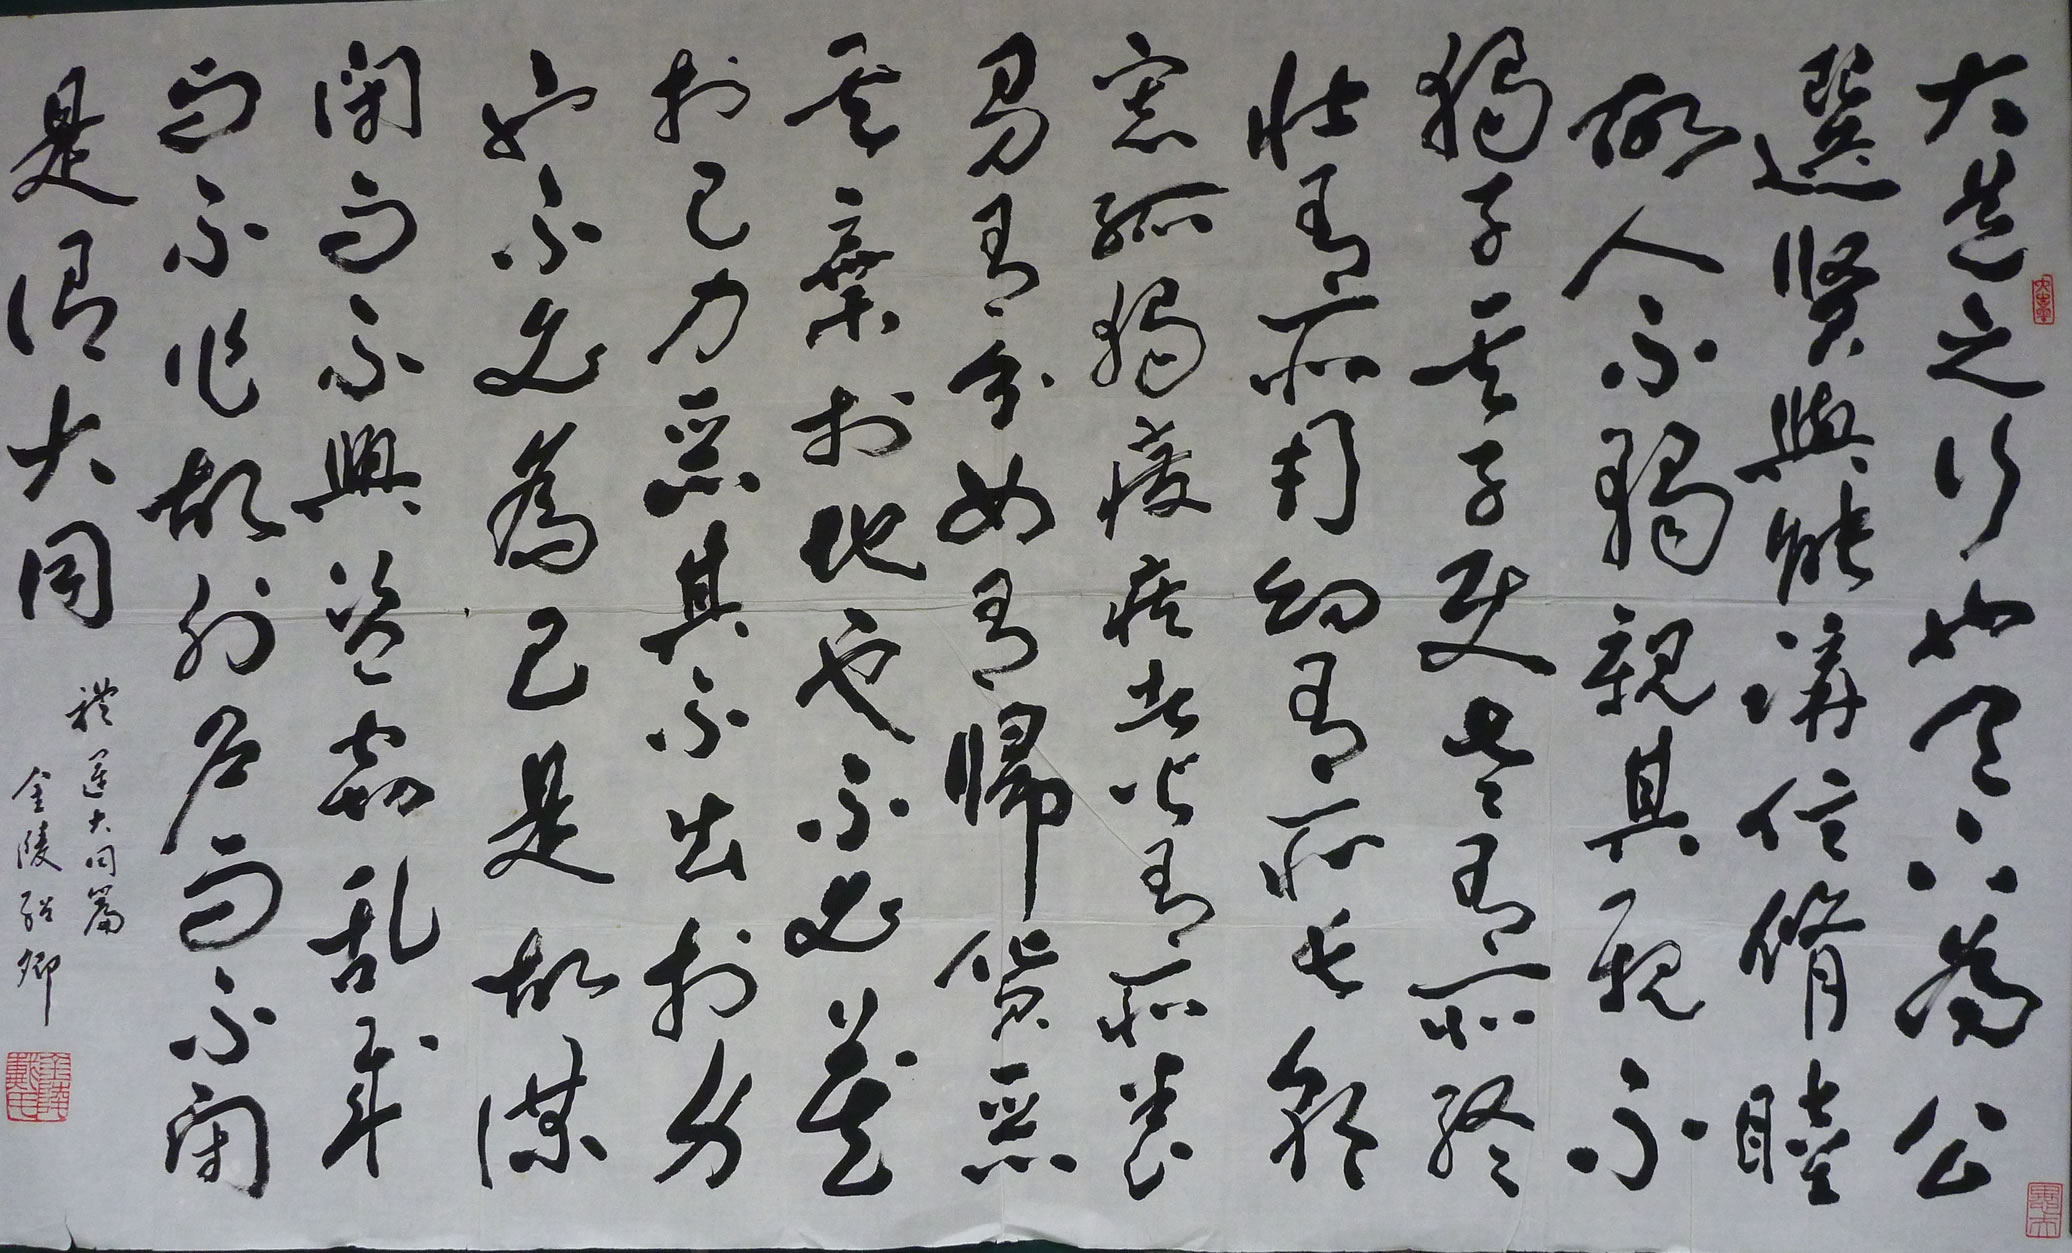 大道之行也天下為公
選賢與能講信脩睦
故人不獨親其親不
獨子其子使老有所終
壯有所用幼有所長矜
寡孤獨廢疾者皆有所養
男有分女有歸貨惡
其棄扵地也不必藏
扵己力惡其不出扵身
也不必為己是故謀
閉而不興盜竊乱賊
而不作故外户而不閉
是謂大同
禮運大同篇
金陵紹卿